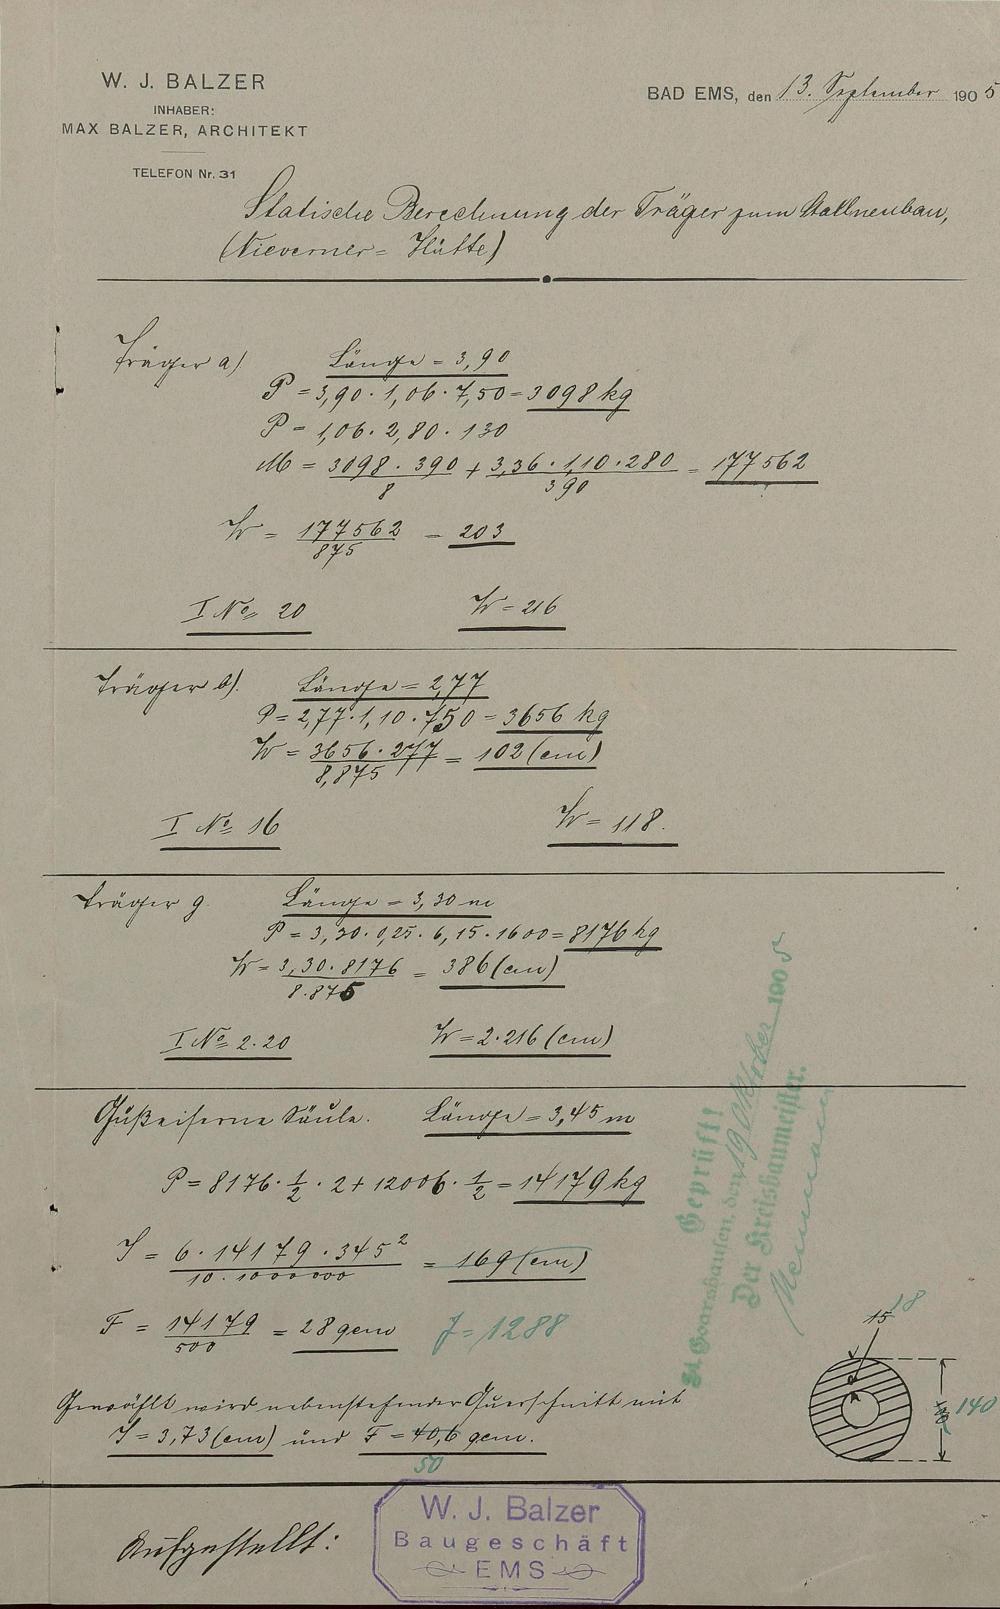 W. J. BALZER
INHABER:
MAX BALZER, ARCHITEKT
TELEFON Nr. 31
BAD EMS, den 13. September 1905
Statische Berechnung der Träger zum Stallneubau,
(Nieverner= Hütte)
Träger a) Länge = 3,90
P = 3,90 · 1,06 · 7,50 = 3098 kg
P = 1,06 · 2,80 · 130
M = 3098 · 390 / 8 + 3,36 · 1,10 · 280 / 390 = 177562
W = 177562 / 875 = 203
I No 20 W = 216
Träger b). Länge = 2,77
P = 2,77 · 1,10 · 750 = 3656 kg
W = 3656 · 277 / 8,875 = 102 (cm)
I No 16 W = 118.
Träger g. Länge = 3,30 m
P = 3,30 · 0,25 · 6,15 · 1600 = 8176 kg
W = 3,30 · 8176 / 8.875 = 386 (cm)
I No 2.20 W = 2 · 216 (cm)
Gußeiserne Säule. Länge = 3,45 m
P = 8176 · 1/2 · 2 + 12006 · 1/2 = 14179 kg
J = 6 · 14179 · 345² / 10 · 1000000 = 169 (cm)
F = 14179 / 500 = 28 qcm J = 1288
Gewählt wird nebenstehender Querschnitt mit
J = 3,73 (cm) und F = 40,6 qcm.
50
15 18
140
Geprüft!
St. Goarshausen, den 19 Oktober 1905
Der Kreisbaumeister.
Aufgestellt:
W. J. Balzer
Baugeschäft
EMS